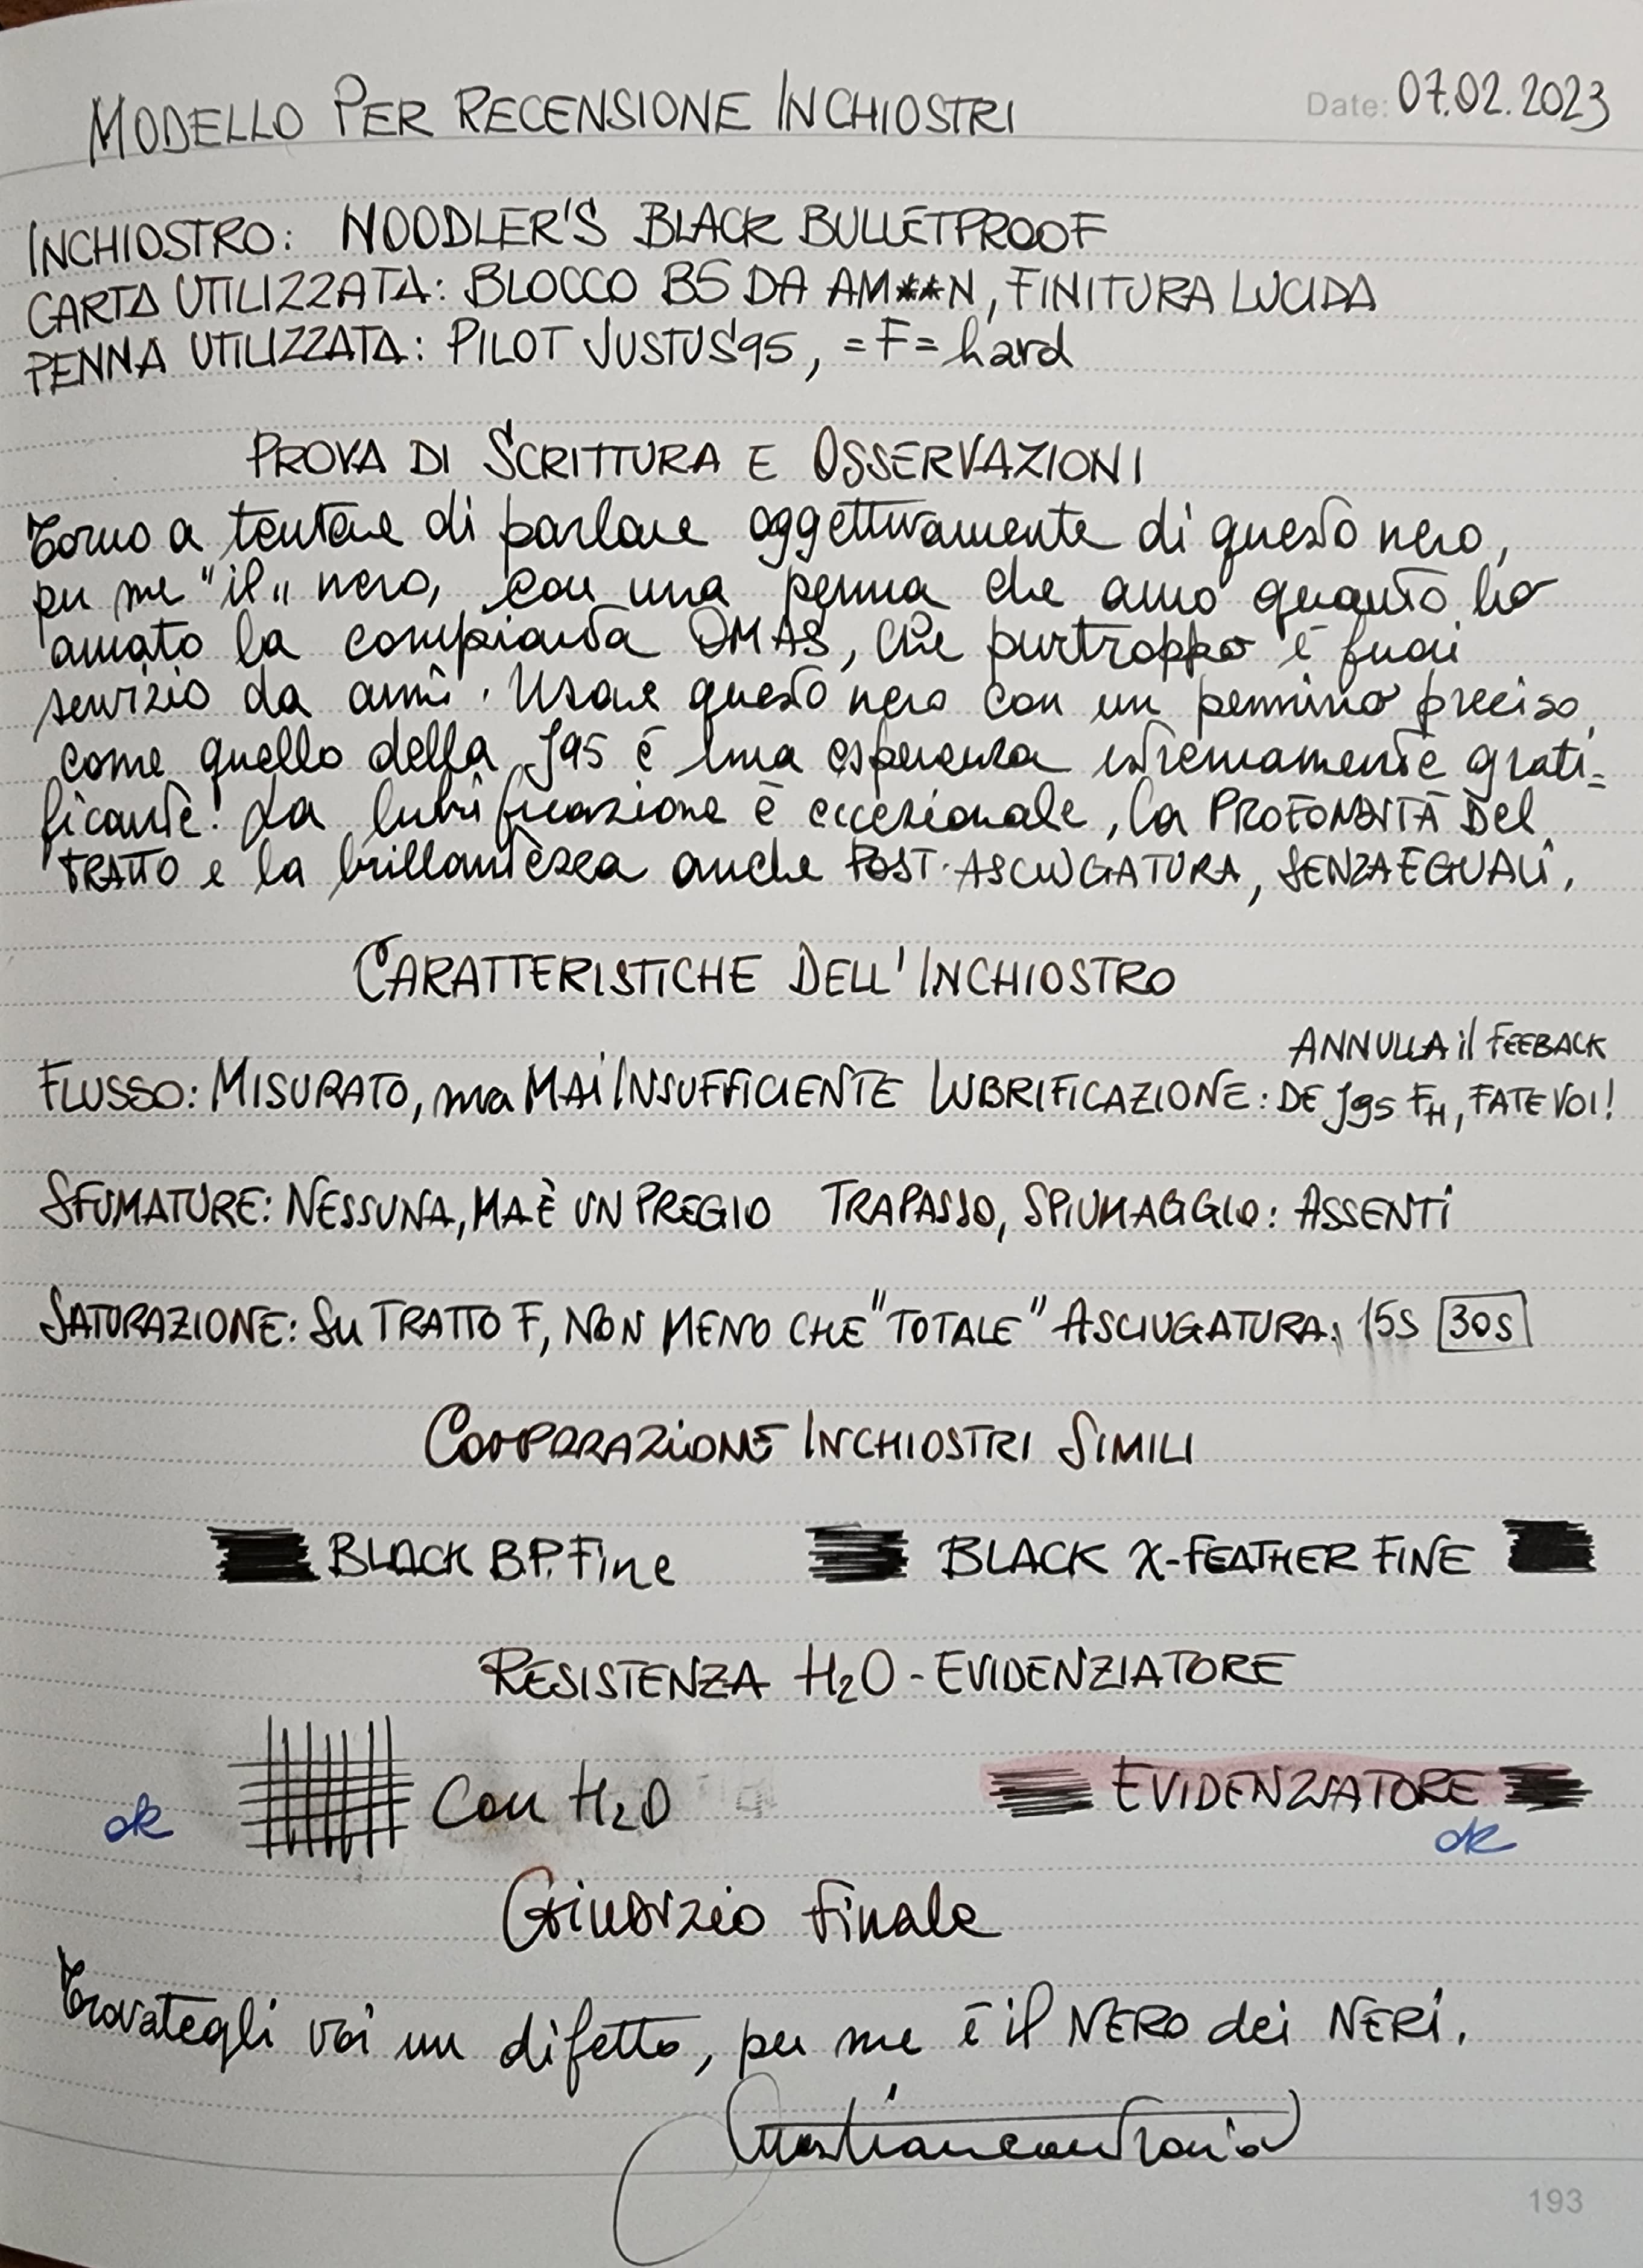 MODELLO PER RECENSIONE INCHIOSTRI Date: 07.02.2023
INCHIOSTRO: NOODLER'S BLACK BULLETPROOF
CARTA UTILIZZATA: BLOCCO B5 DA AM**N, FINITURA LUCIDA
PENNA UTILIZZATA: PILOT JUSTUS95, =F= hard
PROVA DI SCRITTURA E OSSERVAZIONI
Torno a tentare di parlare oggettivamente di questo nero,
per me "il" nero, con una penna che amo quanto ho
amato la compianta OMAS, che purtroppo è fuori
servizio da anni. Usare questo nero con un pennino preciso
come quello della J95 è una esperienza estremamente grati=
ficante. La lubrificazione è eccezionale, la PROFONDITÀ DEL
TRATTO e la brillantezza anche POST-ASCIUGATURA, SENZA EGUALI.
CARATTERISTICHE DELL'INCHIOSTRO
ANNULLA il FEEBACK
FLUSSO: MISURATO, ma MAI INSUFFICIENTE LUBRIFICAZIONE: DE J95 FH, FATE VOI!
SFUMATURE: NESSUNA, MA È UN PREGIO TRAPASSO, SPIUMAGGIO: ASSENTI
SATURAZIONE: SU TRATTO F, NON MENO CHE "TOTALE" ASCIUGATURA: 15S 30S
COMPARAZIONE INCHIOSTRI SIMILI
BLACK B.P. Fine BLACK X-FEATHER FINE
RESISTENZA H2O - EVIDENZIATORE
ok Con H2O EVIDENZIATORE
ok
Giudizio Finale
Trovategli voi un difetto, per me è il NERO dei NERI.
193